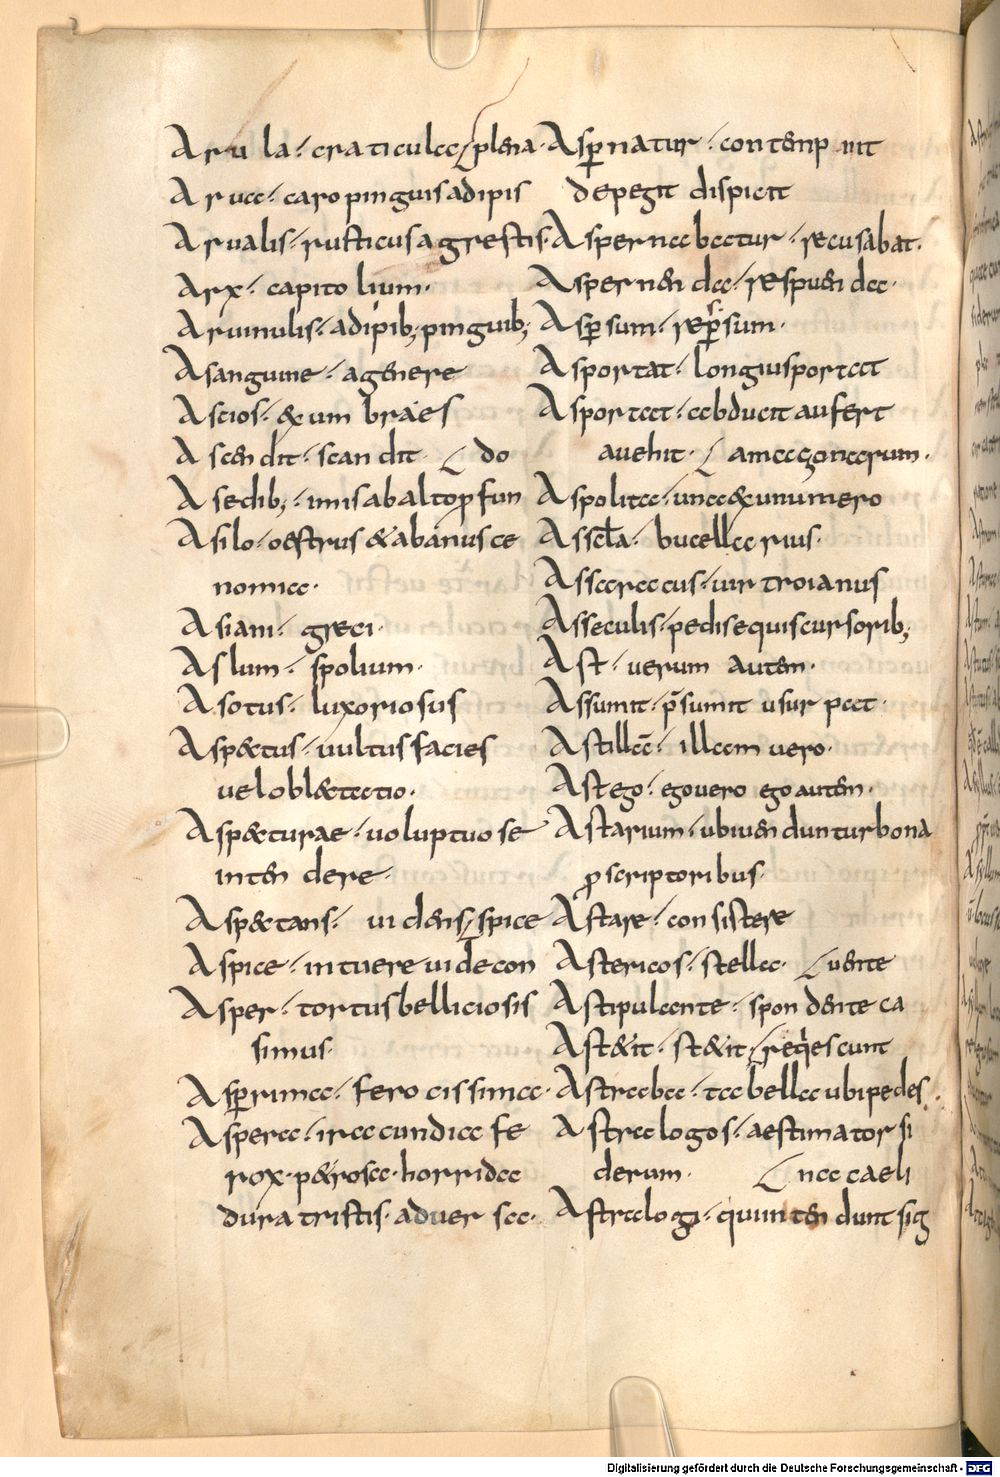 Arula· craticula plena·
Arua· caro pinguis adipis
Arualis· rusticus agrestis·
Arx· capitolium·
Aruinulis· adipib; pinguib;
Asanguine· agenere
Ascios· & umbraes
Ascendit· scandit· do
Asedib; imis ab alto ꝓfun
Asilo· oestrus & abanus ce
nomia·
Asiani· greci·
Aslum· spolium·
Asotus· luxoriosus
Asp&tus· uultus facies
uel obl&tatio·
Asp&turae· uoluptuose
intendere·
Asp&tans· uidens· spice
Aspice· intuere uide con
Asper· tortus belliciosis
simus·
Asꝑrima· ferocissima·
Aspera· iracundia fe
rox· p&rosa· horrida
dura tristis· aduersa·
Asꝑnatur· contemp nit
depegit dispicit
Aspernabatur· recusabat·
Aspernenda· respuenda·
Asꝑsum· reꝑsum·
Asportat· longius portat
Asportat· abducit aufert
auehit· amazonarum·
Aspolita· una & unumero
Asscl̄a· bucellarius·
Assaracus· uir troianus
Asseculis· pedisequis cursorib;
Ast· uerum autem·
Assumit· p̄sumit usurpat·
Astillā· illam uero·
Astego· ego uero ego autem·
Astarium· ubi uendunt bona
ꝓscriptoribus·
Astare· consistere
Astericos· stella· uente
Astipulante· spondente ca
Ast&it· st&it· requiescunt
Astraba· tabella ubi pedes
Astralogos· aestimator si
derum· na caeli
Astralogi· qui intendunt sig
Digitalisierung gefördert durch die Deutsche Forschungsgemeinschaft - DFG